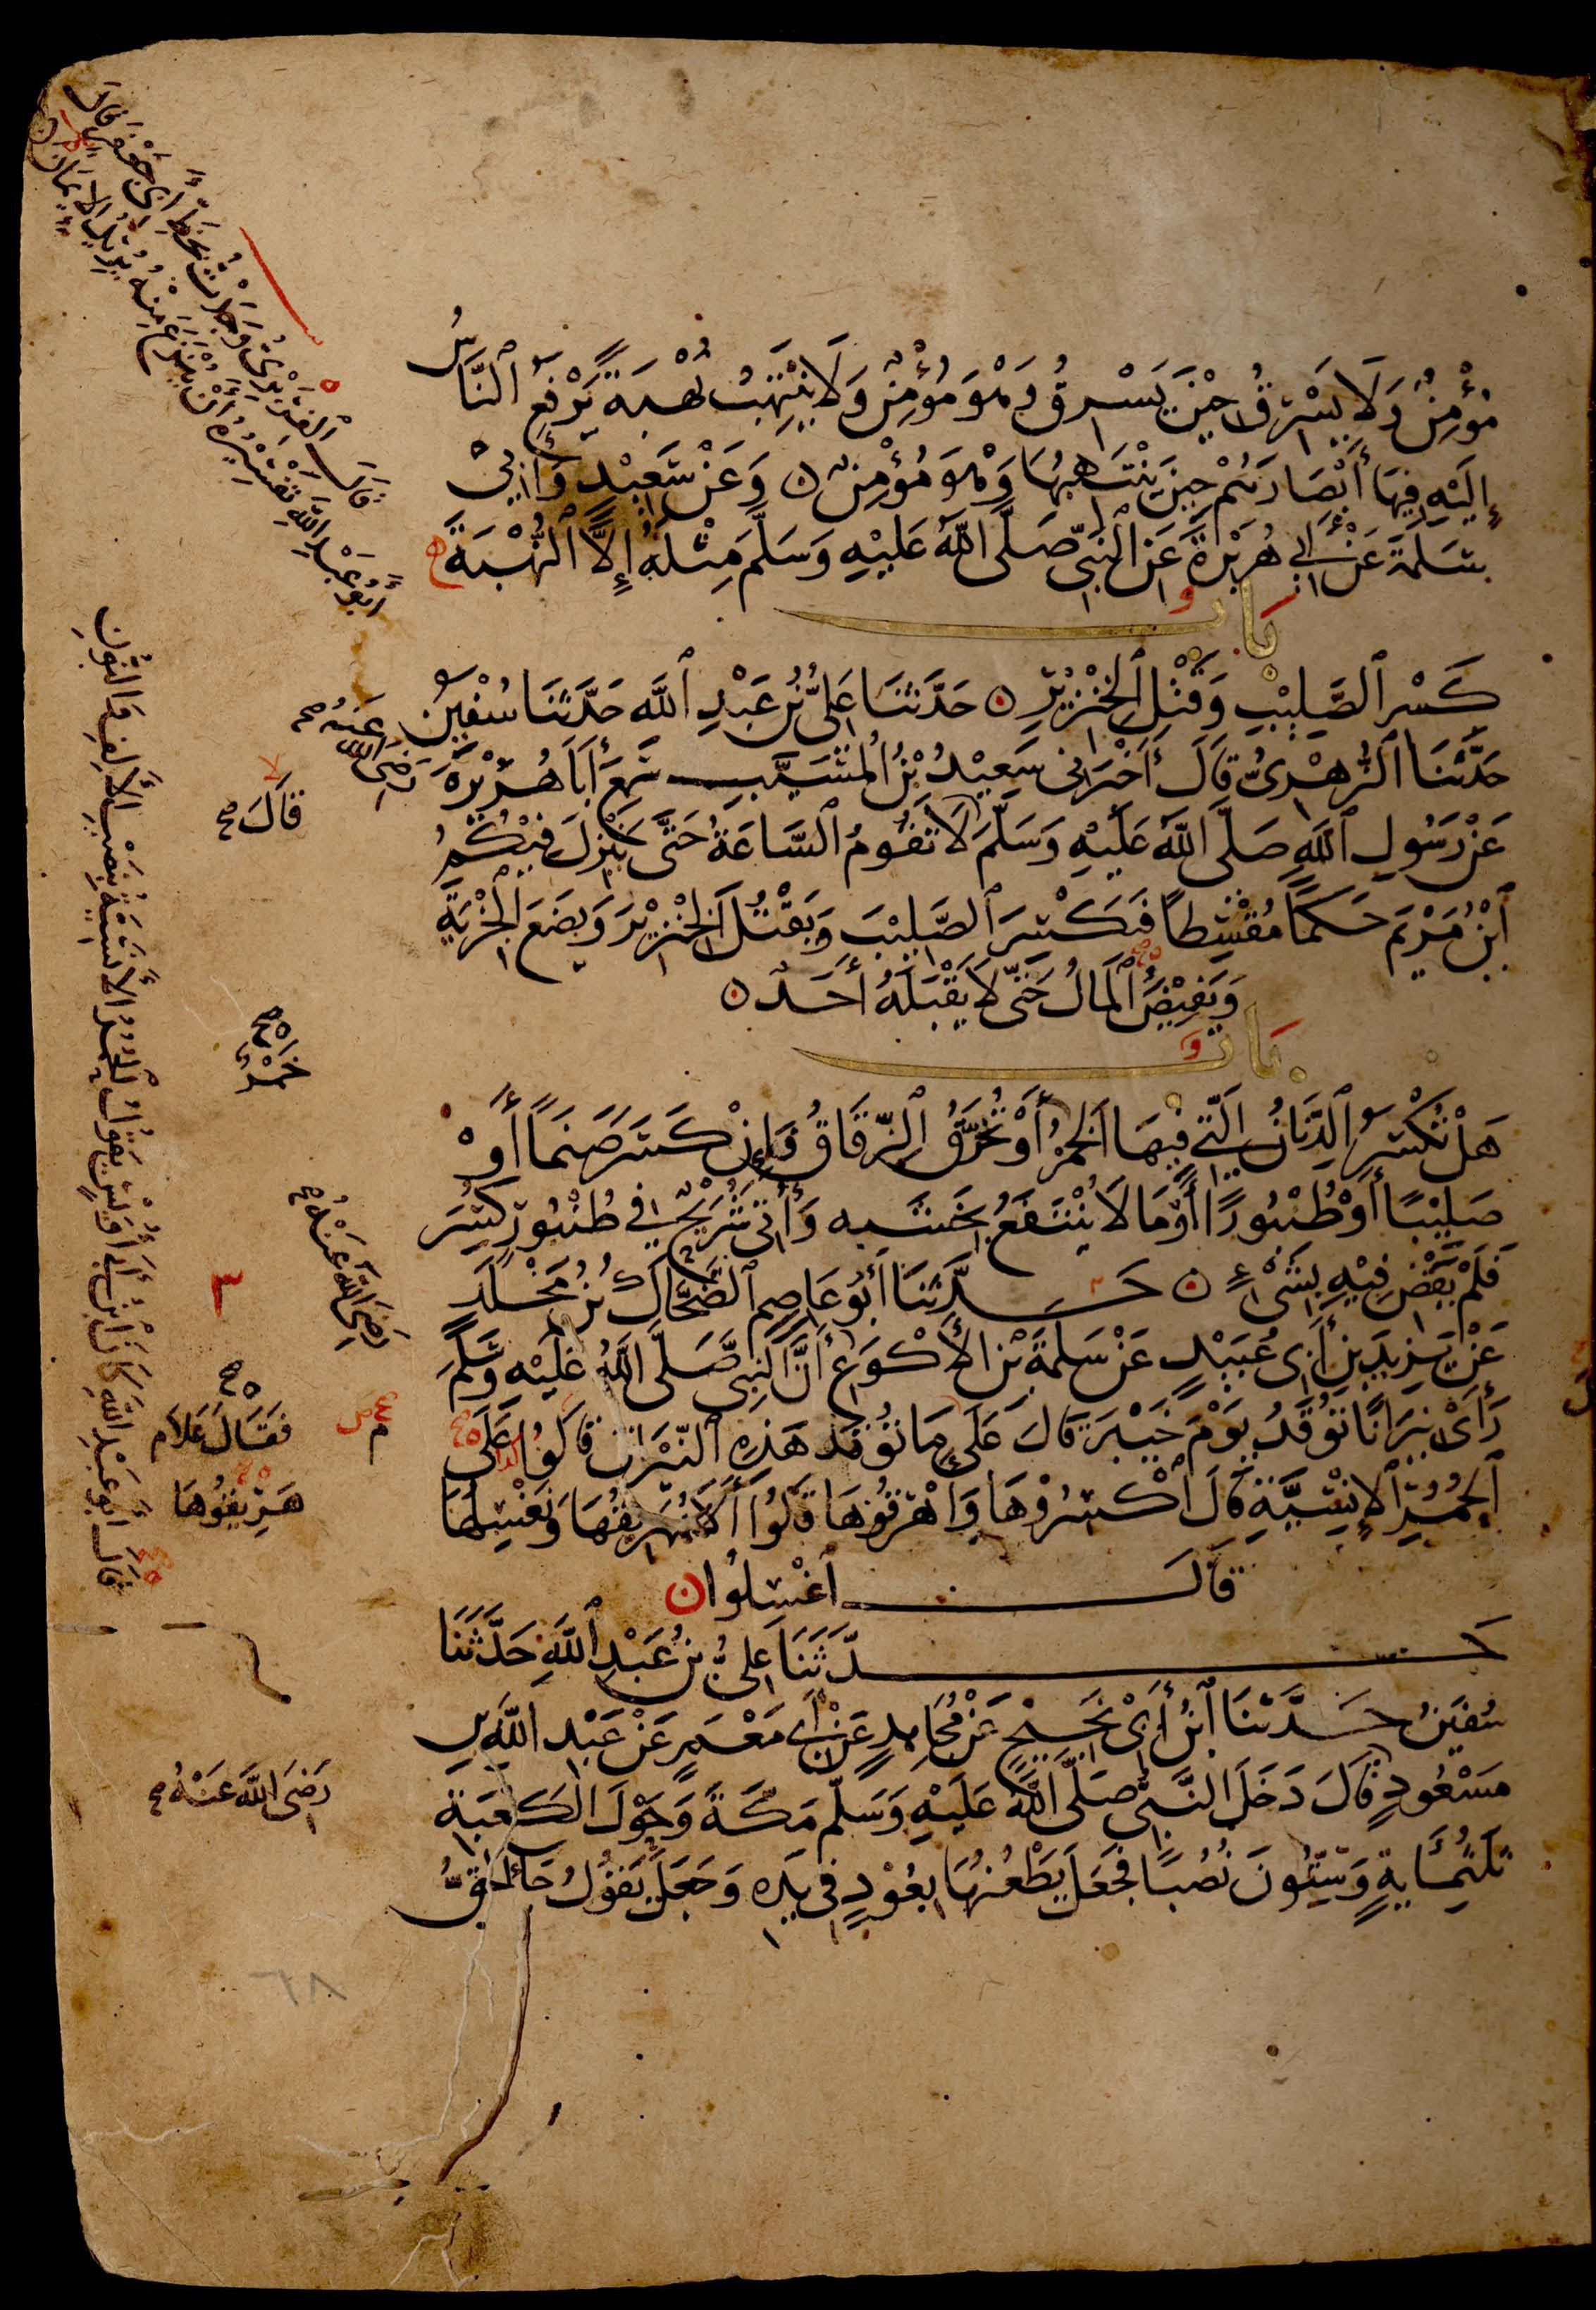 مُؤْمِنٌ وَلَا يَسْرِقُ حِيْنَ يَسْرِقُ وَهْوَ مُؤْمِنٌ وَلَا يَنْتَهِبُ نُهْبَةً يَرْفَعُ ٱلنَّاسُ
إِلَيْهِ فِيهَا أَبْصَارَهُمْ حِينَ يَنْتَهِبُهَا وَهْوَ مُؤْمِنٌ ۝ وَعَنْ سَعِيْدٍ وَأَبِيْ
سَلَمَةَ عَنْ أَبِي هُرَيْرَةَ عَنِ ٱلنَّبِيِّ صَلَّى ٱللَّهُ عَلَيْهِ وَسَلَّمَ مِثْلَهُ إِلَّا ٱلنُّهْبَةَ
بَابُ
كَسْرِ ٱلصَّلِيْبِ وَقَتْلِ ٱلْخِنْزِيْرِ ۝ حَدَّثَنَا عَلِيُّ بْنُ عَبْدِ ٱللَّهِ حَدَّثَنَا سُفْيٰنُ
حَدَّثَنَا ٱلزُّهْرِيُّ قَالَ أَخْبَرَنِي سَعِيْدُ بْنُ ٱلْمُسَيَّبِ سَمِعَ أَبَا هُرَيْرَةَ رَضِيَ اللَّهُ عَنْهُ
عَنْ رَسُولِ ٱللَّهِ صَلَّى ٱللَّهُ عَلَيْهِ وَسَلَّمَ لَا تَقُومُ ٱلسَّاعَةُ حَتَّى يَنْزِلَ فِيْكُمُ
قَالَ
ٱبْنُ مَرْيَمَ حَكَمًا مُقْسِطًا فَيَكْسِرَ ٱلصَّلِيْبَ وَيَقْتُلَ ٱلْخِنْزِيْرَ وَيَضَعَ ٱلْجِزْيَةَ
وَيَفِيْضَ ٱلْمَالُ حَتَّى لَا يَقْبَلَهُ أَحَدٌ ۝
بَابُ
هَلْ تُكْسَرُ ٱلدِّنَانُ ٱلَّتِي فِيْهَا ٱلْخَمْرُ أَوْ تُخَرَّقُ ٱلزِّقَاقُ فَإِنْ كَسَرَ صَنَمًا أَوْ
خَمْرٌ
صَلِيْبًا أَوْ طُنْبُورًا أَوْ مَا لَا يُنْتَفَعُ بِخَشَبِهِ وَأُتِيَ شُرَيْحٌ فِي طُنْبُورٍ كُسِرَ
فَلَمْ يَقْضِ فِيْهِ بِشَيْءٍ ۝ حَدَّثَنَا أَبُو عَاصِمٍ ٱلضَّحَّاكُ بْنُ مَخْلَدٍ
عَنْ يَزِيدَ بْنِ أَبِي عُبَيْدٍ عَنْ سَلَمَةَ بْنِ الْأَكْوَعِ أَنَّ النَّبِيَّ صَلَّى اللَّهُ عَلَيْهِ وَسَلَّمَ
رَضِيَ اللَّهُ عَنْهُ
رَأَى نِيْرَانًا تُوْقَدُ يَوْمَ خَيْبَرَ قَالَ عَلَى مَا تُوْقَدُ هَذِهِ ٱلنِّيْرَانُ قَالُوا عَلَى
فَقَالَ عَلَامَ
ٱلْحُمُرِ ٱلْإِنْسِيَّةِ قَالَ ٱكْسِرُوْهَا وَاهْرِقُوْهَا قَالُوا أَلَا نُهَرِيقُهَا وَنَغْسِلُهَا
هَرِيْقُوهَا
قَالَ ٱغْسِلُوا ۝
حَدَّثَنَا عَلِيُّ بْنُ عَبْدِ ٱللَّهِ حَدَّثَنَا
سُفْيٰنُ حَدَّثَنَا ٱبْنُ أَبِيْ نَجِيْحٍ عَنْ مُجَاهِدٍ عَنْ أَبِي مَعْمَرٍ عَنْ عَبْدِ اللَّهِ بْنِ
مَسْعُودٍ قَالَ دَخَلَ النَّبِيُّ صَلَّى ٱللَّهُ عَلَيْهِ وَسَلَّمَ مَكَّةَ وَحَوْلَ الْكَعْبَةِ
رَضِيَ اللَّهُ عَنْهُ
ثَلٰثُمِائَةٍ وَسِتُّونَ نُصُبًا فَجَعَلَ يَطْعُنُهَا بِعُوْدٍ فِي يَدِهِ وَجَعَلَ يَقُولُ جَاءَ الْحَقُّ
قَالَ ٱلْفِرَبْرِيُّ وَجَدْتُ بِخَطِّ أَبِي جَعْفَرٍ قَالَ
أَبُو عَبْدِ اللَّهِ تَفْسِيْرُهُ أَنْ يُنْزَعَ مِنْهُ يُرِيدُ الْإِيمَانَ
قَالَ أَبُو عَبْدِ اللَّهِ كَانَ ابْنُ أَبِي أُوَيْسٍ يَقُولُ الْحُمُرُ الْأَنَسِيَّةُ بِنَصْبِ الْأَلِفِ وَالنُّونِ
٦٨